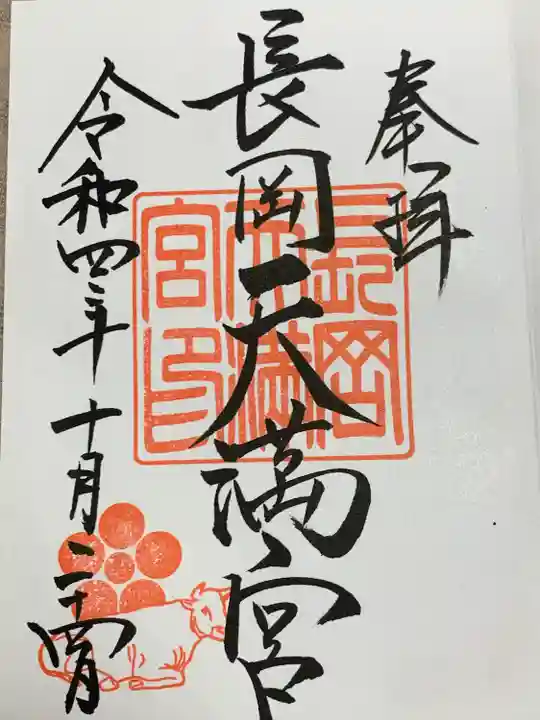 奉拝
長岡天満宮
長岡天満宮印
令和四年十月二十四日